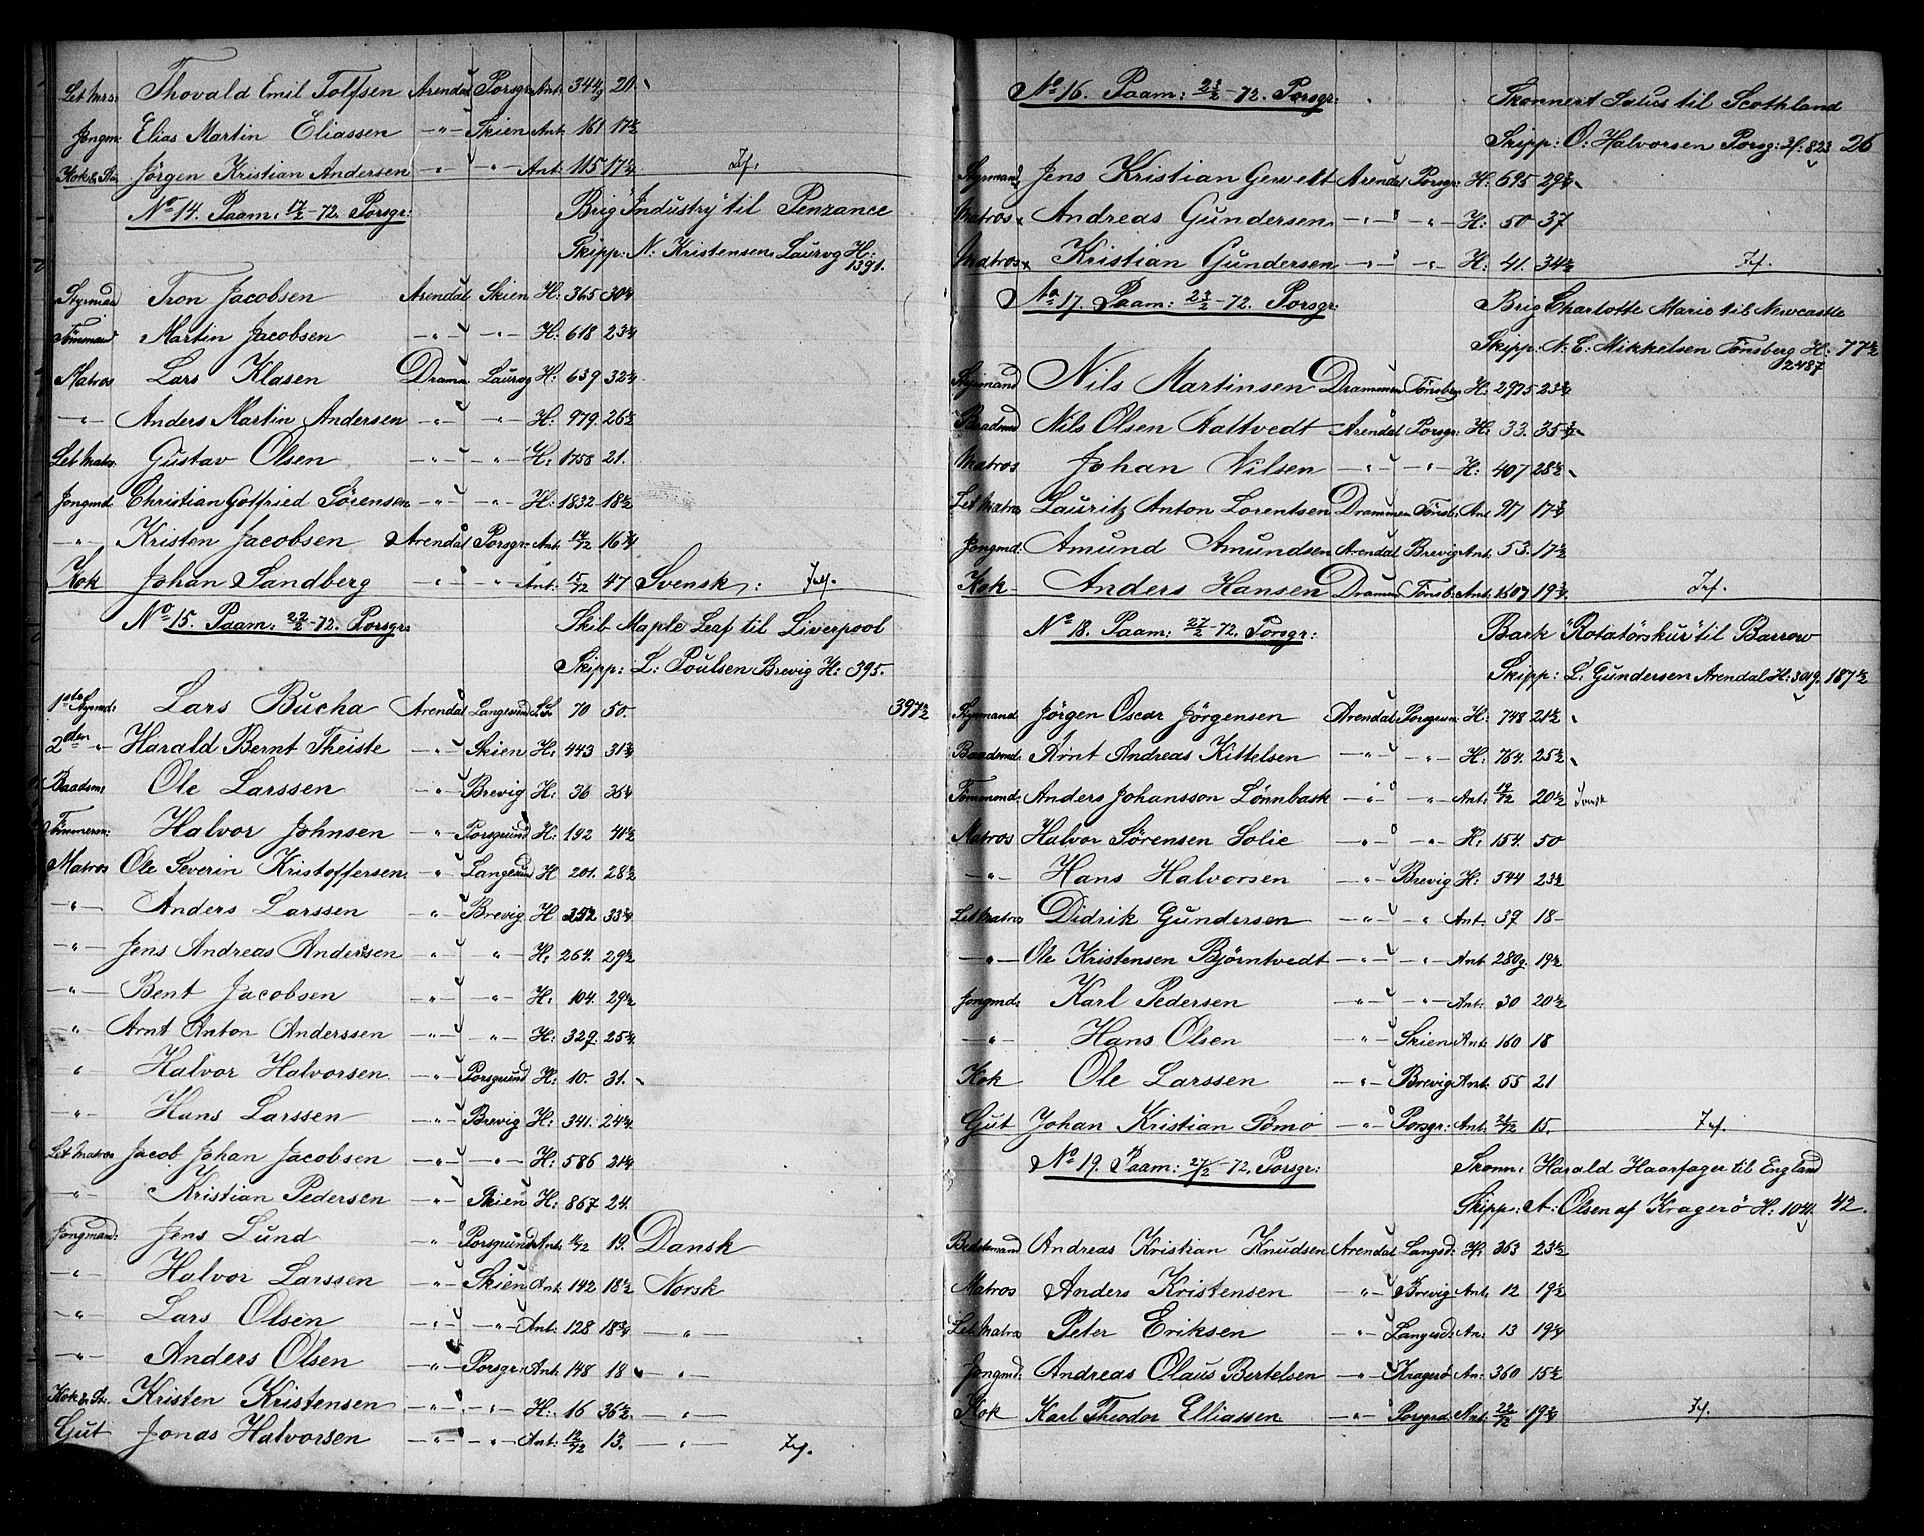 Let Mrs: Thovald Emil Tolfsen Arendal Porsgr: Ant: 344 20.
Jongm: Elias Martin Eliassen —"— Skien Ant: 161 17½
Kok & St: Jörgen Kristian Andersen " —"— Ant: 115 17¼ Ff.
No 14. Paam: 17/2-72. Porsgr: Brig "Industry" til Penzance
Skipp: N: Kristensen Laurvg H: 1391.
Styrmand Tron Jacobsen Arendal Skien H: 365 30¼
Tömmand Martin Jacobsen —"— —"— H: 618 23¼
Matros Lars Klasen Dramn Laurvg H: 639 32¼
—"— Anders Martin Andersen —"— —"— H: 979. 26½
Let Matr. Gustav Olsen —"— —"— H: 1758 21.
Jongmd. Christian Gotfried Sörensen —"— " H: 1832 18½
—"— Kristen Jacobsen Arendal Porsgr: Ant: 14/72 16¾
Kok Johan Sandberg —"— " Ant: 15/72 47 Svensk: Ff.
No 15. Paam: 22/2-72. Porsgr: Skib Maple Leaf til Liverpool
Skipp: L: Poulsen Brevig H: 395.
1ste Styrmd: Lars Bucha Arendal Langesund 70 50. 397½
2den " Harald Bernt Theiste —"— Skien H: 443 31¾
Baadsm: Ole Larssen —"— Brevig H: 36 35¼
Tömmerm: Halvor Johnsen —" Porsgrund H: 192 41½
Matros Ole Severin Kristoffersen —" Langesund H 201. 28½
—"— Anders Larssen —" Brevig H 252 33¼
—"— Jens Andreas Andersen —" " H: 264. 29½
—"— Bent Jacobsen —"— —"— H: 104. 29½
—"— Arnt Anton Anderssen —"— —"— H: 329. 25¼
" Halvor Halvorsen —" Porsgrund H: 10. 31.
—"— Hans Larssen —"— Brevig H: 341. 24¼
Let Matros Jacob Johan Jacobsen —"— —"— H: 586 21¼
—"— Kristian Pedersen —"— Skien H: 867 24.
Jongmand: Jens Lund " Porsgrund Ant: 19. Dansk
—"— Halvor Larssen —"— Skien Ant 142 18½ Norsk
—"— Lars Olsen —"— —"— Ant: 128 18¾ —"—
—"— Anders Olsen —"— Porsgr: Ant: 148 18 —"—
Kok & St: Kristen Kristensen —"— —"— H: 16 36½. —"—
Gut Jonas Halvorsen —"— —"— Ant: 12/72 13. —"— Ff.
No 16. Paam: 23/2-72. Porsgr: Skonnert Salus til Scothland
Skipp: O: Halvorsen Porsg: H: 823 26
Styrmand Jens Kristian Gewelt Arendal Porsgr: H: 695 29¾
Matros Andreas Gundersen —"— —"— H: 50 37
Matros Kristian Gundersen —"— —"— H: 41. 34½ Ff.
No 17. Paam: 23/2-72. Porsgr: Brig Charlotte Marie til Newcastle
Skipp: N: C: Mikkelsen Tönsberg H: 2487 77½
Styrmand Nils Martinsen Drammen Tönsberg H: 2975 23¾
Baadsmd Nils Olsen Aaltvedt Arendal Porsgr: H: 33. 35½
Matros Johan Nilsen —"— —"— H: 407 28½
Let Matros Lauritz Anton Lorentsen Drammen Tönsb: Ant 97 17¾
Jongmd. Amund Amundsen Arendal Brevig Ant. 53. 17½
Kok Anders Hansen Dramen Tönsb: Ant. 1607 19¾ Ff.
No 18. Paam: 27/2-72. Porsgr: Bark "Rotatörskur" til Barrow
Skipp: L. Gundersen Arendal H: 3019. 187½
Styrmand Jörgen Oscar Jörgensen Arendal Porsgrun H: 748 21½
Baadsmd: Arnt Andreas Kittelsen —"— —"— H: 764. 25½
Tömmond: Anders Johansson Lönnbask —"— —"— Ant: 17/72 20½ Svensk
Matros Halvor Sörensen Solie —"— —"— H: 154. 50
—"— Hans Halvorsen —"— Brevig H: 544 23½
Let Matros Didrik Gundersen —"— —"— Ant. 37 18-
—"— Ole Kristensen Björntvedt —"— —"— Ant. 280g. 19½
Jongmd: Karl Pedersen —"— —"— Ant: 30 20½
—"— Hans Olsen —"— Skien Ant: 160 18
Kok Ole Larssen —"— Brevig Ant. 55 21
Gut Johan Kristian Tömö —"— Porsgr: Ant: 24/72 15. Ff.
No 19. Paam: 27/2-72. Porsgr: Skonn: Harald Haarfager til England
Skipp: A: Olsen af Kragerö H: 1041. 42.
Bedstemand Andreas Kristian Knudsen Arendal Langsd: H: 363 23½
Matros Anders Kristensen —"— Brevig Ant. 12 19½
Let Matros Peter Eriksen —"— Langesd: An: 13 19¼
Jongmd: Andreas Olaus Bertelsen —"— Kragerö An: 360 15½
Kok Karl Theodor Elliassen —"— Porsgrd: Ant: 22/72 19¾ Ff.